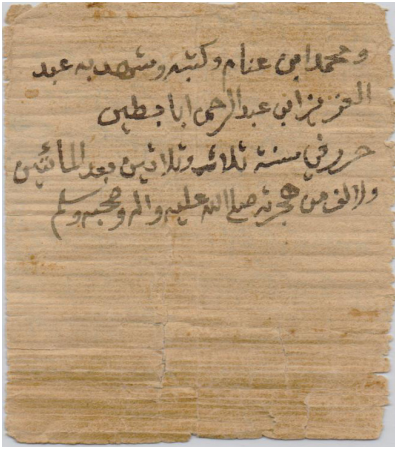 ومحمد ابن غنام وكتبه وشهد به عبد
العزيز ابن عبد الرحمن ابا بطين
حرر في سنة ثلاثه وثلاثين بعد المائتين
والالف من هجرته صلى الله عليه واله وصحبه وسلم